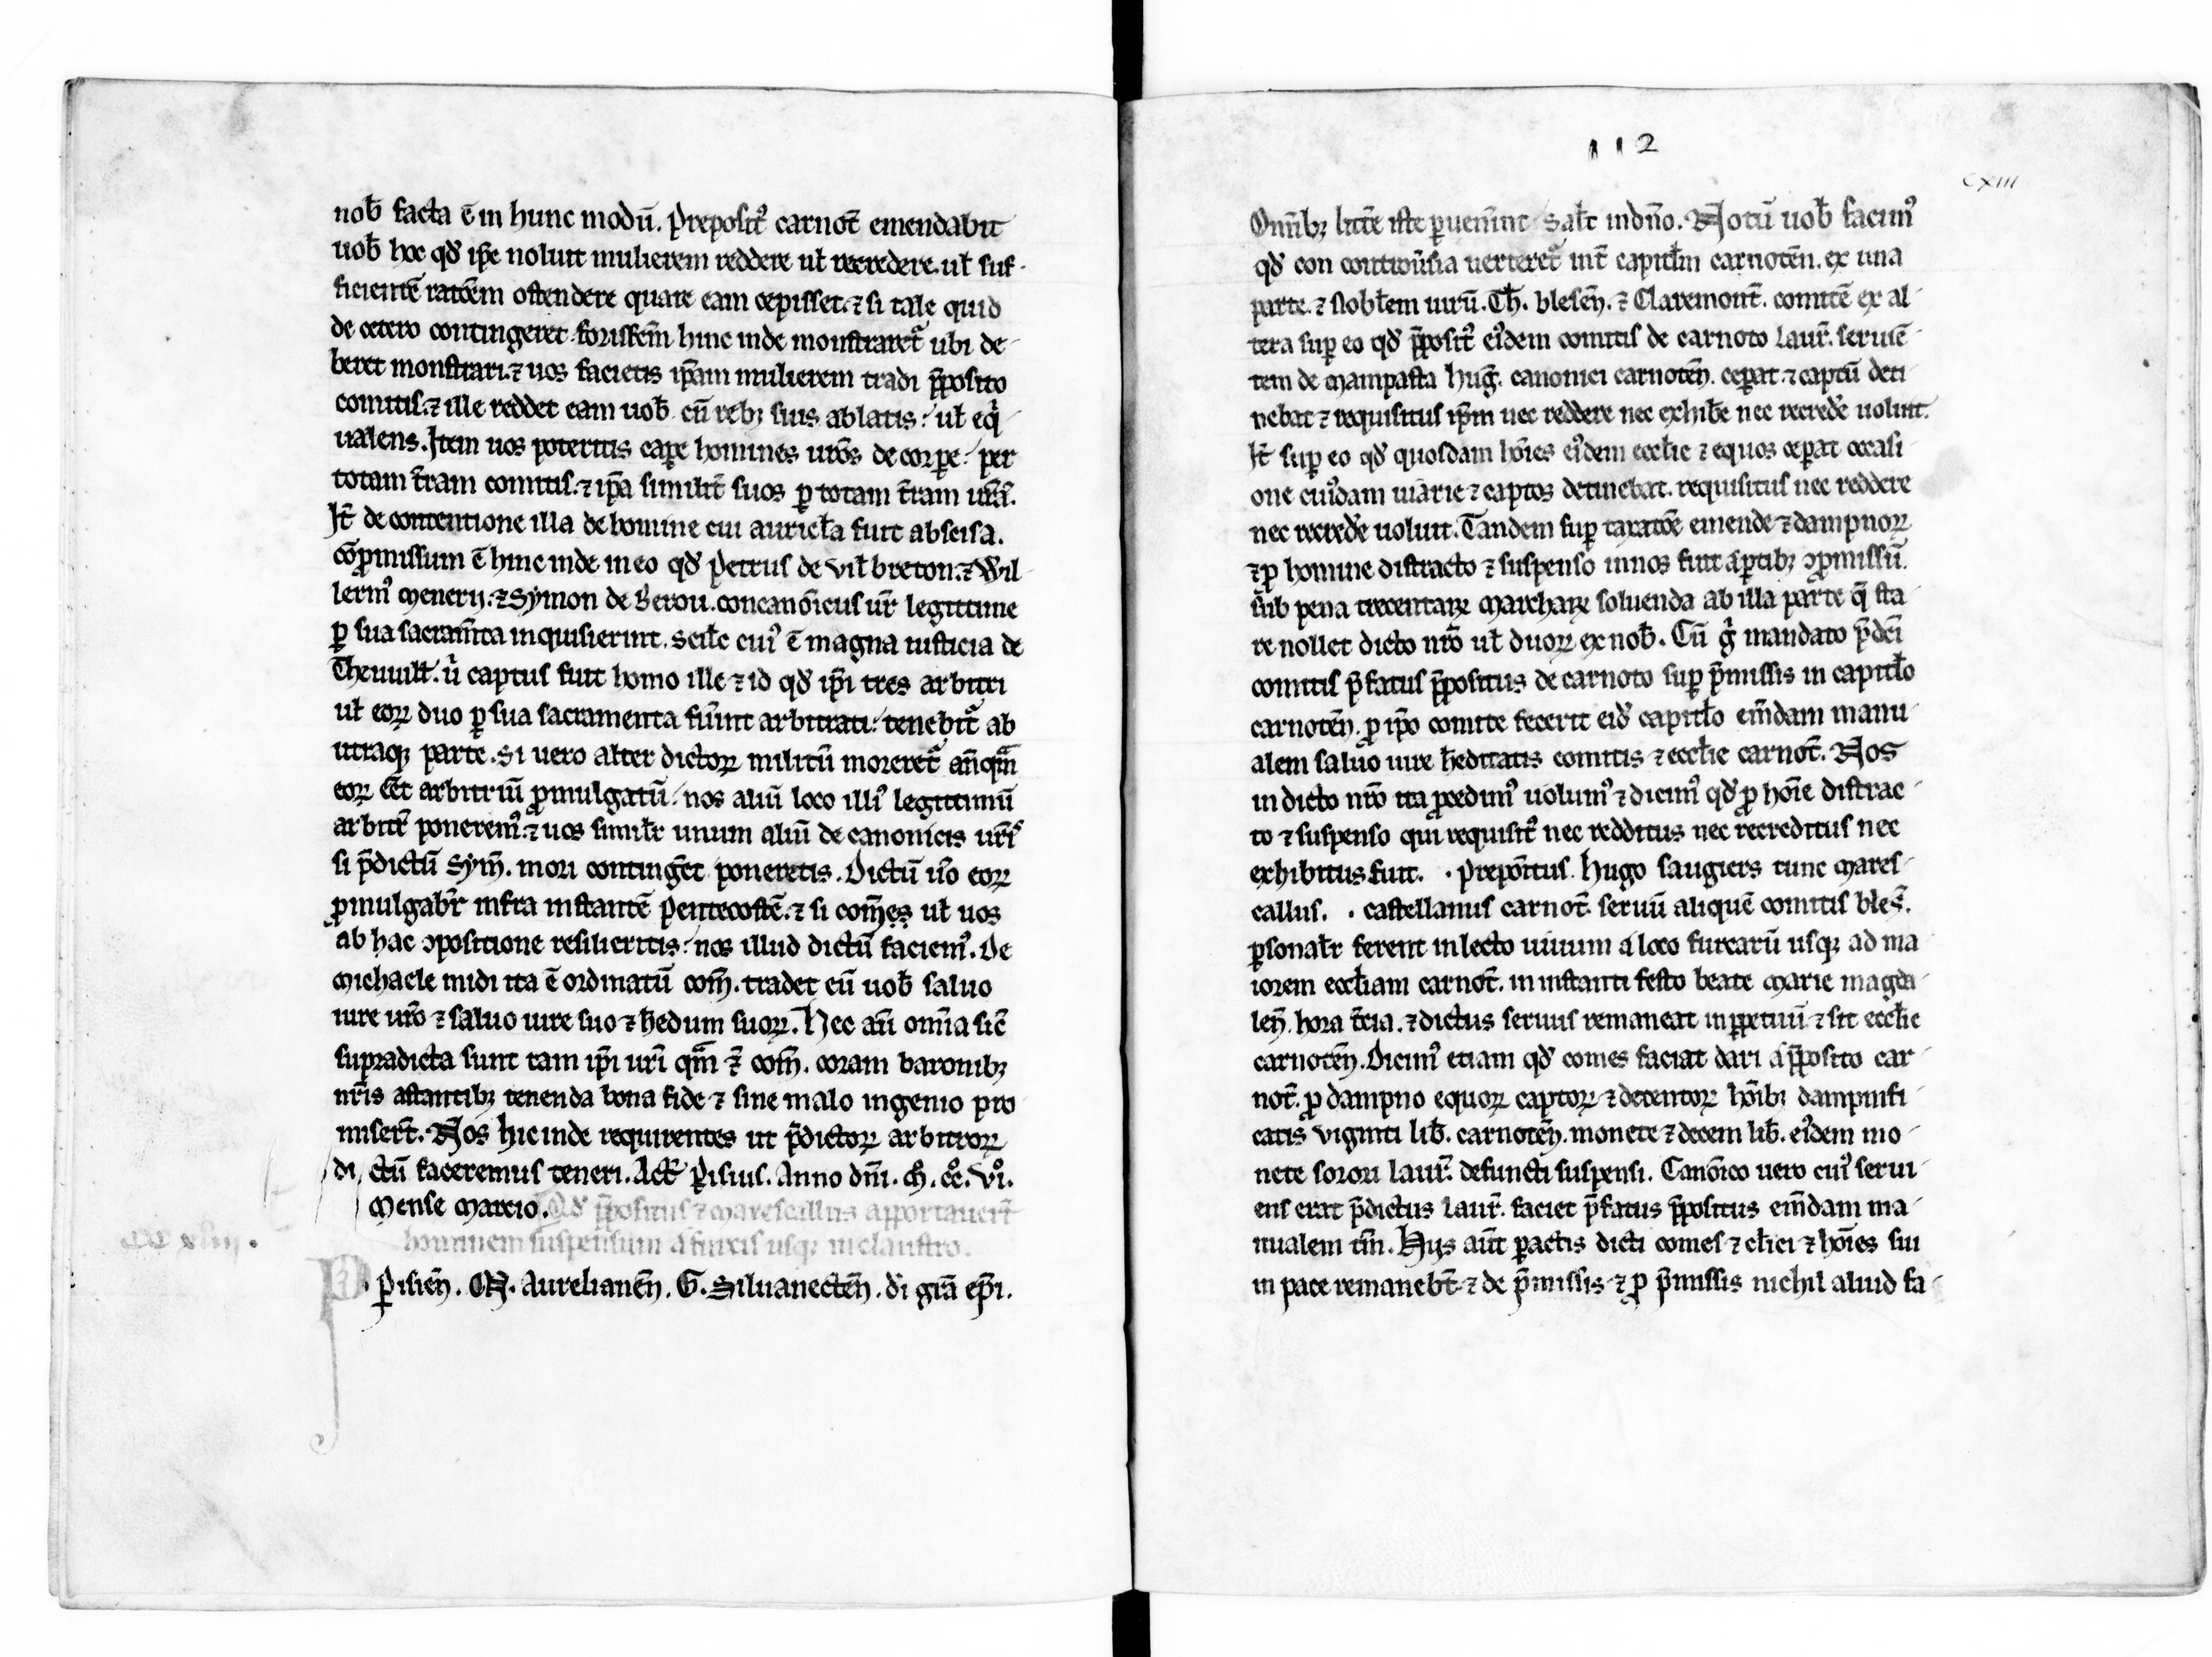 nob̄ facta ē in hunc modū. Preposit᷒ carnot̄ emendabit
uob̄ hoc qd̄ ip̄e noluit mulierem reddere ul̄ recredere. ul̄ suf-
ficientē rat̄oem ostendere quare eam cepisset. ⁊ si tale quid
de cetero contingeret forisfcm̄ hinc inde monstraret᷑ ubi de-
beret monstrari. ⁊ uos facietis ip̄am mulierem tradi p̄posito
comitis. ⁊ ille reddet eam uob̄ cū reb; suis ablatis. ul̄ eq̇-
ualens. Item uos poteritis cap̄e homines ur̄os de corꝑe. per
totam t̄ram comitis. ⁊ ip̄a simil̄it suos ꝑ totam t̄ram ur̄am.
It̄ de contentione illa de homine cui auricl̄a fuit abscisa.
cōpromissum ē hinc inde in eo qd̄ Petrus de Vil̄ breton. ⁊ Wil-
lerm᷒ Menerij. ⁊ Symon de Berou. concanōicus ur̄ legitime
ꝑ sua sacram̄ta inquisierint. scil̄c cui᷒ ē magna iusticia de
Theuuill̄. ů captus fuit homo ille ⁊ id qd̄ ip̄i tres arbitri
ul̄ eoꝝ duo ꝑ sua sacramenta fu̾int arbitrati. tenebit᷑ ab
utraq; parte. Si uero alter dictoꝝ militū moreret᷑ an̄qm̄
eoꝝ eēt arbitriū ꝓmulgatū. nos aliū loco illi᷒ legitimū
arbitr̄ ponerem᷒. ⁊ uos simil̄r unum aliū de canonicis ur̄is
si p̄dictū Sym̄. mori conting̾et poneretis. Dictū u̾o eoꝝ
ꝓmulgab̾r infra instantē Pentecostē. ⁊ si com̄es ul̄ uos
ab hac ꝯpositione resilieritis. nos illud dictū faciem᷒. De
Michaele midi ita ē ordinatū com̄. tradet eū uob̄ saluo
iure ur̄o ⁊ saluo iure suo ⁊ h̾edum suoꝝ. Hec aū om̄ia sic̄
supradicta sunt tam ip̄i ur̄i qm̄ ⁊ com̄. coram baronib;
nr̄is astantib; tenenda bona fide ⁊ sine malo ingenio pro-
miser̄t. Nos hic inde requirentes ut p̄dictoꝝ arbitroꝝ
di ctū faceremus teneri. Act̄ Ꝑisius. Anno dn̄i. M̊. cc̊. vı̊.
Mense Marcio. Qd̄ p̄positus ⁊ marescallus apportauer̄t
hominem suspensum a furcis usq; in claustro.
CC xliij.
P. Ꝑisien̄. M. Aurelianen̄. G. Siluanecten̄. di gr̄a ep̄i.
112
cxiii
Omīb; litt̄e iste ꝑuen̾int sal̄t in dn̄o. Notū uob̄ facim᷒
qd̄ con contio̾uersia uerteret᷑ int̄ capitl̄m carnoten̄. ex una
parte. ⁊ Nobl̄em uirū. Th̄. blesen̄. ⁊ Claremont̄. comitē ex al-
tera suꝑ eo qd̄ p̄posit᷒ ei᷒dem comitis de carnoto Laur̄. seruiē-
tem de Mampasta Hug̾. canonici carnoten̄. cep̾at ⁊ captū deti-
nebat ⁊ requisitus ip̄m nec reddere nec exhib̾e nec recred̾e uoluit.
It̄ suꝑ eo qd̄ quosdam ho̅ies ei᷒dem eccl̄ie ⁊ equos cep̾at occasi-
one cui᷒dam uiarie ⁊ captos detinebat. requisitus nec reddere
nec recred̾e uoluit. Tandem suꝑ taxat̄oe emende ⁊ dampnoꝝ
⁊ ꝓ homine distracto ⁊ suspenso in nos fuit a ꝑtib; ꝯpromissū.
sub pena trecentaꝝ marchaꝝ soluenda ab illa parte q̄ sta-
re nollet dicto nr̄o ul̄ duoꝝ ex nob̄. Cū g̾ mandato p̄dc̄i
comitis p̄fatus p̄positus de carnoto suꝑ p̄missis in capitl̄o
carnoten̄. ꝓ ip̄o comite fecerit eid̄ capitl̄o em̄dam manu-
alem saluo iure h̾editatis comitis ⁊ eccl̄ie carnot̄. Nos
in dicto nr̄o ita ꝓcedim᷒ uolum᷒ ⁊ dicim᷒ qd̄ ꝓ ho̅ie distrac-
to ⁊ suspenso qui requisit᷒ nec redditus nec recreditus nec
exhibitus fuit. . Prepo̅itus. Hugo saugiers tunc Mares-
callus. . castellanus carnot̄. seruū aliquē comitis bles̄.
ꝑsonal̄r ferent in lecto uiuum a loco furcarū usq; ad ma-
iorem eccl̄iam carnot̄. in instanti festo beate Marie magda-
len̄. hora t̄cia. ⁊ dictus seruus remaneat in ꝑpetuū ⁊ sit eccl̄ie
carnoten̄. Dicim᷒ etiam qd̄ comes faciat dari a p̄posito car-
not̄. ꝓ dampno equoꝝ captoꝝ ⁊ detentoꝝ ho̅ib; dampnifi-
catis viginti lib̄. carnoten̄. monete ⁊ decem lib̄. ei᷒dem mo-
nete sorori Laur̄. defuncti suspensi. Canōico uero cui᷒ serui-
ens erat p̄dictus Laur̄. faciet p̄fatus p̄positus em̄dam ma-
nualem tm̄. Hijs aūt ꝑactis dicti comes ⁊ cl̄ici ⁊ ho̅ies sui
in pace remaneb̄t ⁊ de p̄missis ⁊ ꝓ p̄missis nichil aliud fa-